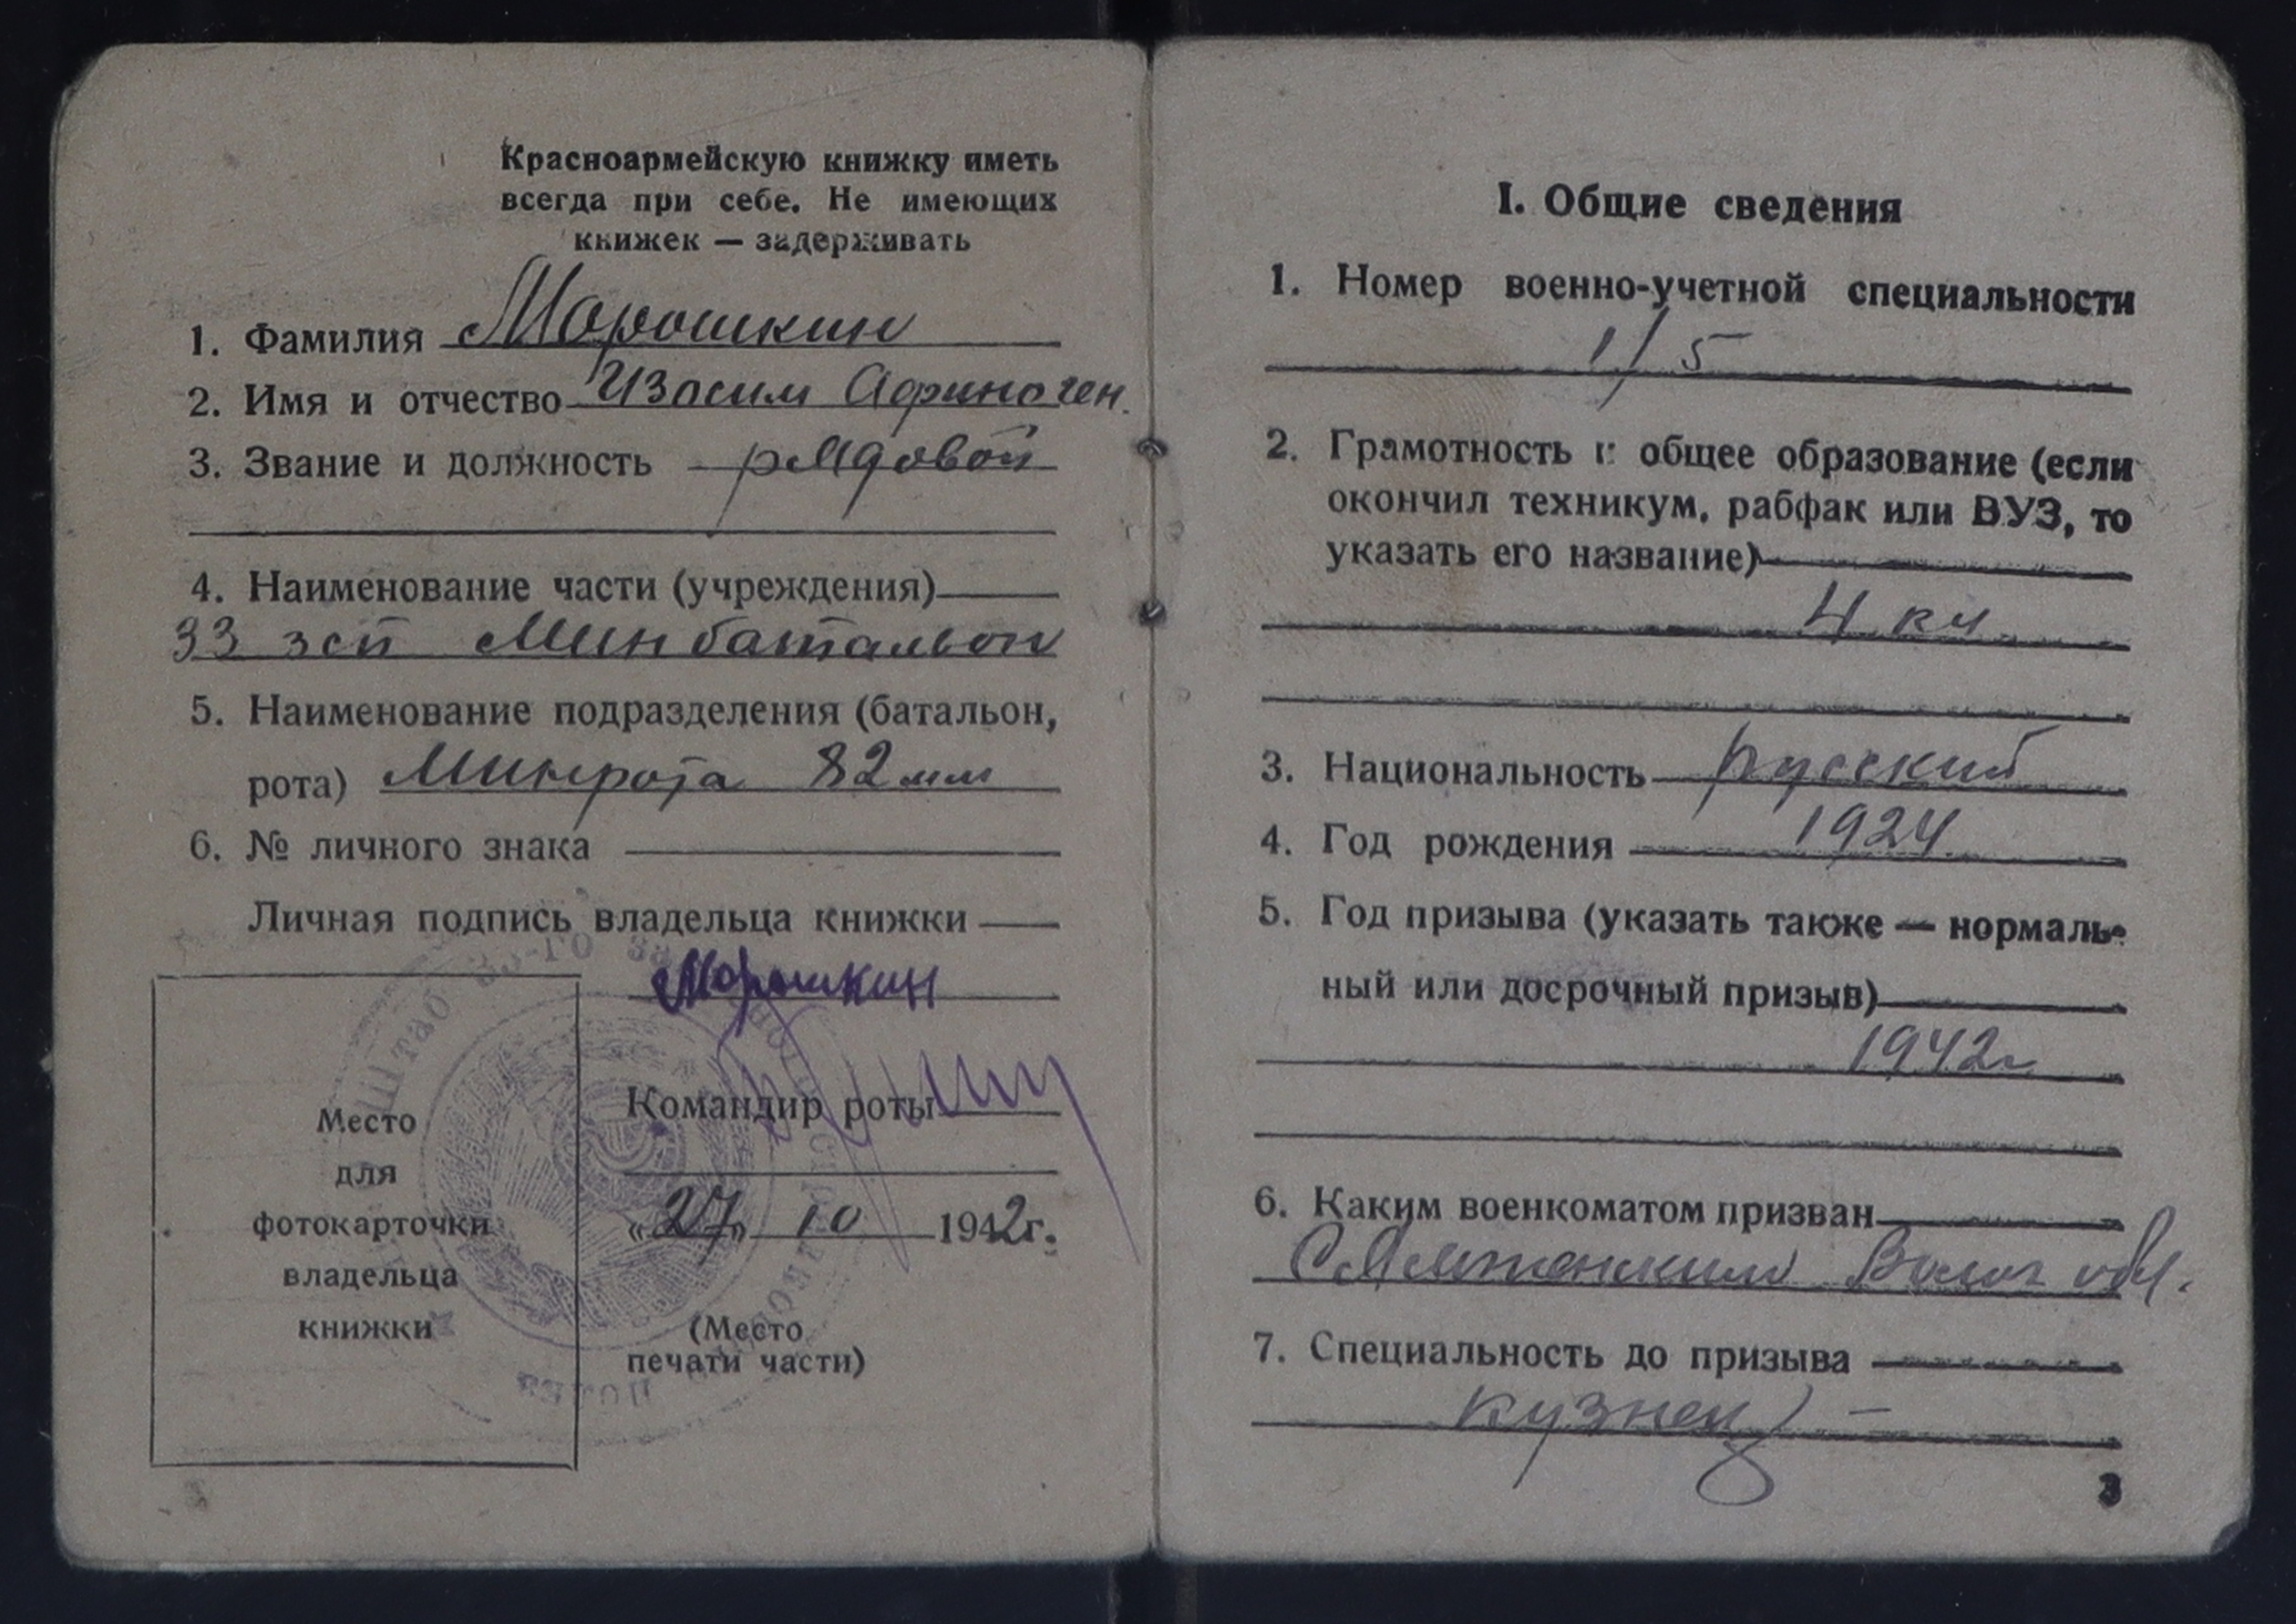 Красноармейскую книжку иметь
всегда при себе. Не имеющих
книжек — задерживать
1. Фамилия Морошкин
2. Имя и отчество Изосим Афиноген.
3. Звание и должность рядовой
4. Наименование части (учреждения)
33 зсп Минбатальон
5. Наименование подразделения (батальон,
рота) Минрота 82 мм
6. № личного знака
Личная подпись владельца книжки
Морошкин
Командир роты
«27» 10 1942г.
(Место
печати части)
Место
для
фотокарточки
владельца
книжки
Штаб 33-го
I. Общие сведения
1. Номер военно-учетной специальности
1/5
2. Грамотность и общее образование (если
окончил техникум, рабфак или ВУЗ, то
указать его название)
4 кл
3. Национальность русский
4. Год рождения 1924
5. Год призыва (указать также — нормаль-
ный или досрочный призыв)
1942г
6. Каким военкоматом призван
Сямженским Волог обл.
7. Специальность до призыва
кузнец —
3